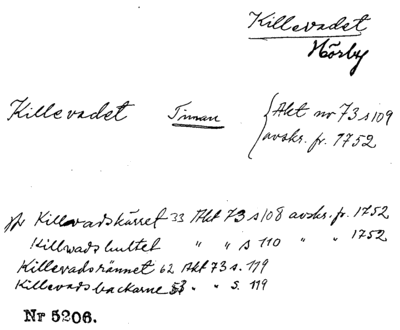 Killevadet
Hörby
Killevadet Timan { Akt nr 73 s 109
avskr. fr. 1752
jfr Killevadskärret 33 Akt 73 s 108 avskr. fr. 1752
Killevadshultet " " s 110 " " 1752
Killevadsrännet 62 Akt 73 s. 119
Killevadsbackarne " " s. 119
Nr 5206.